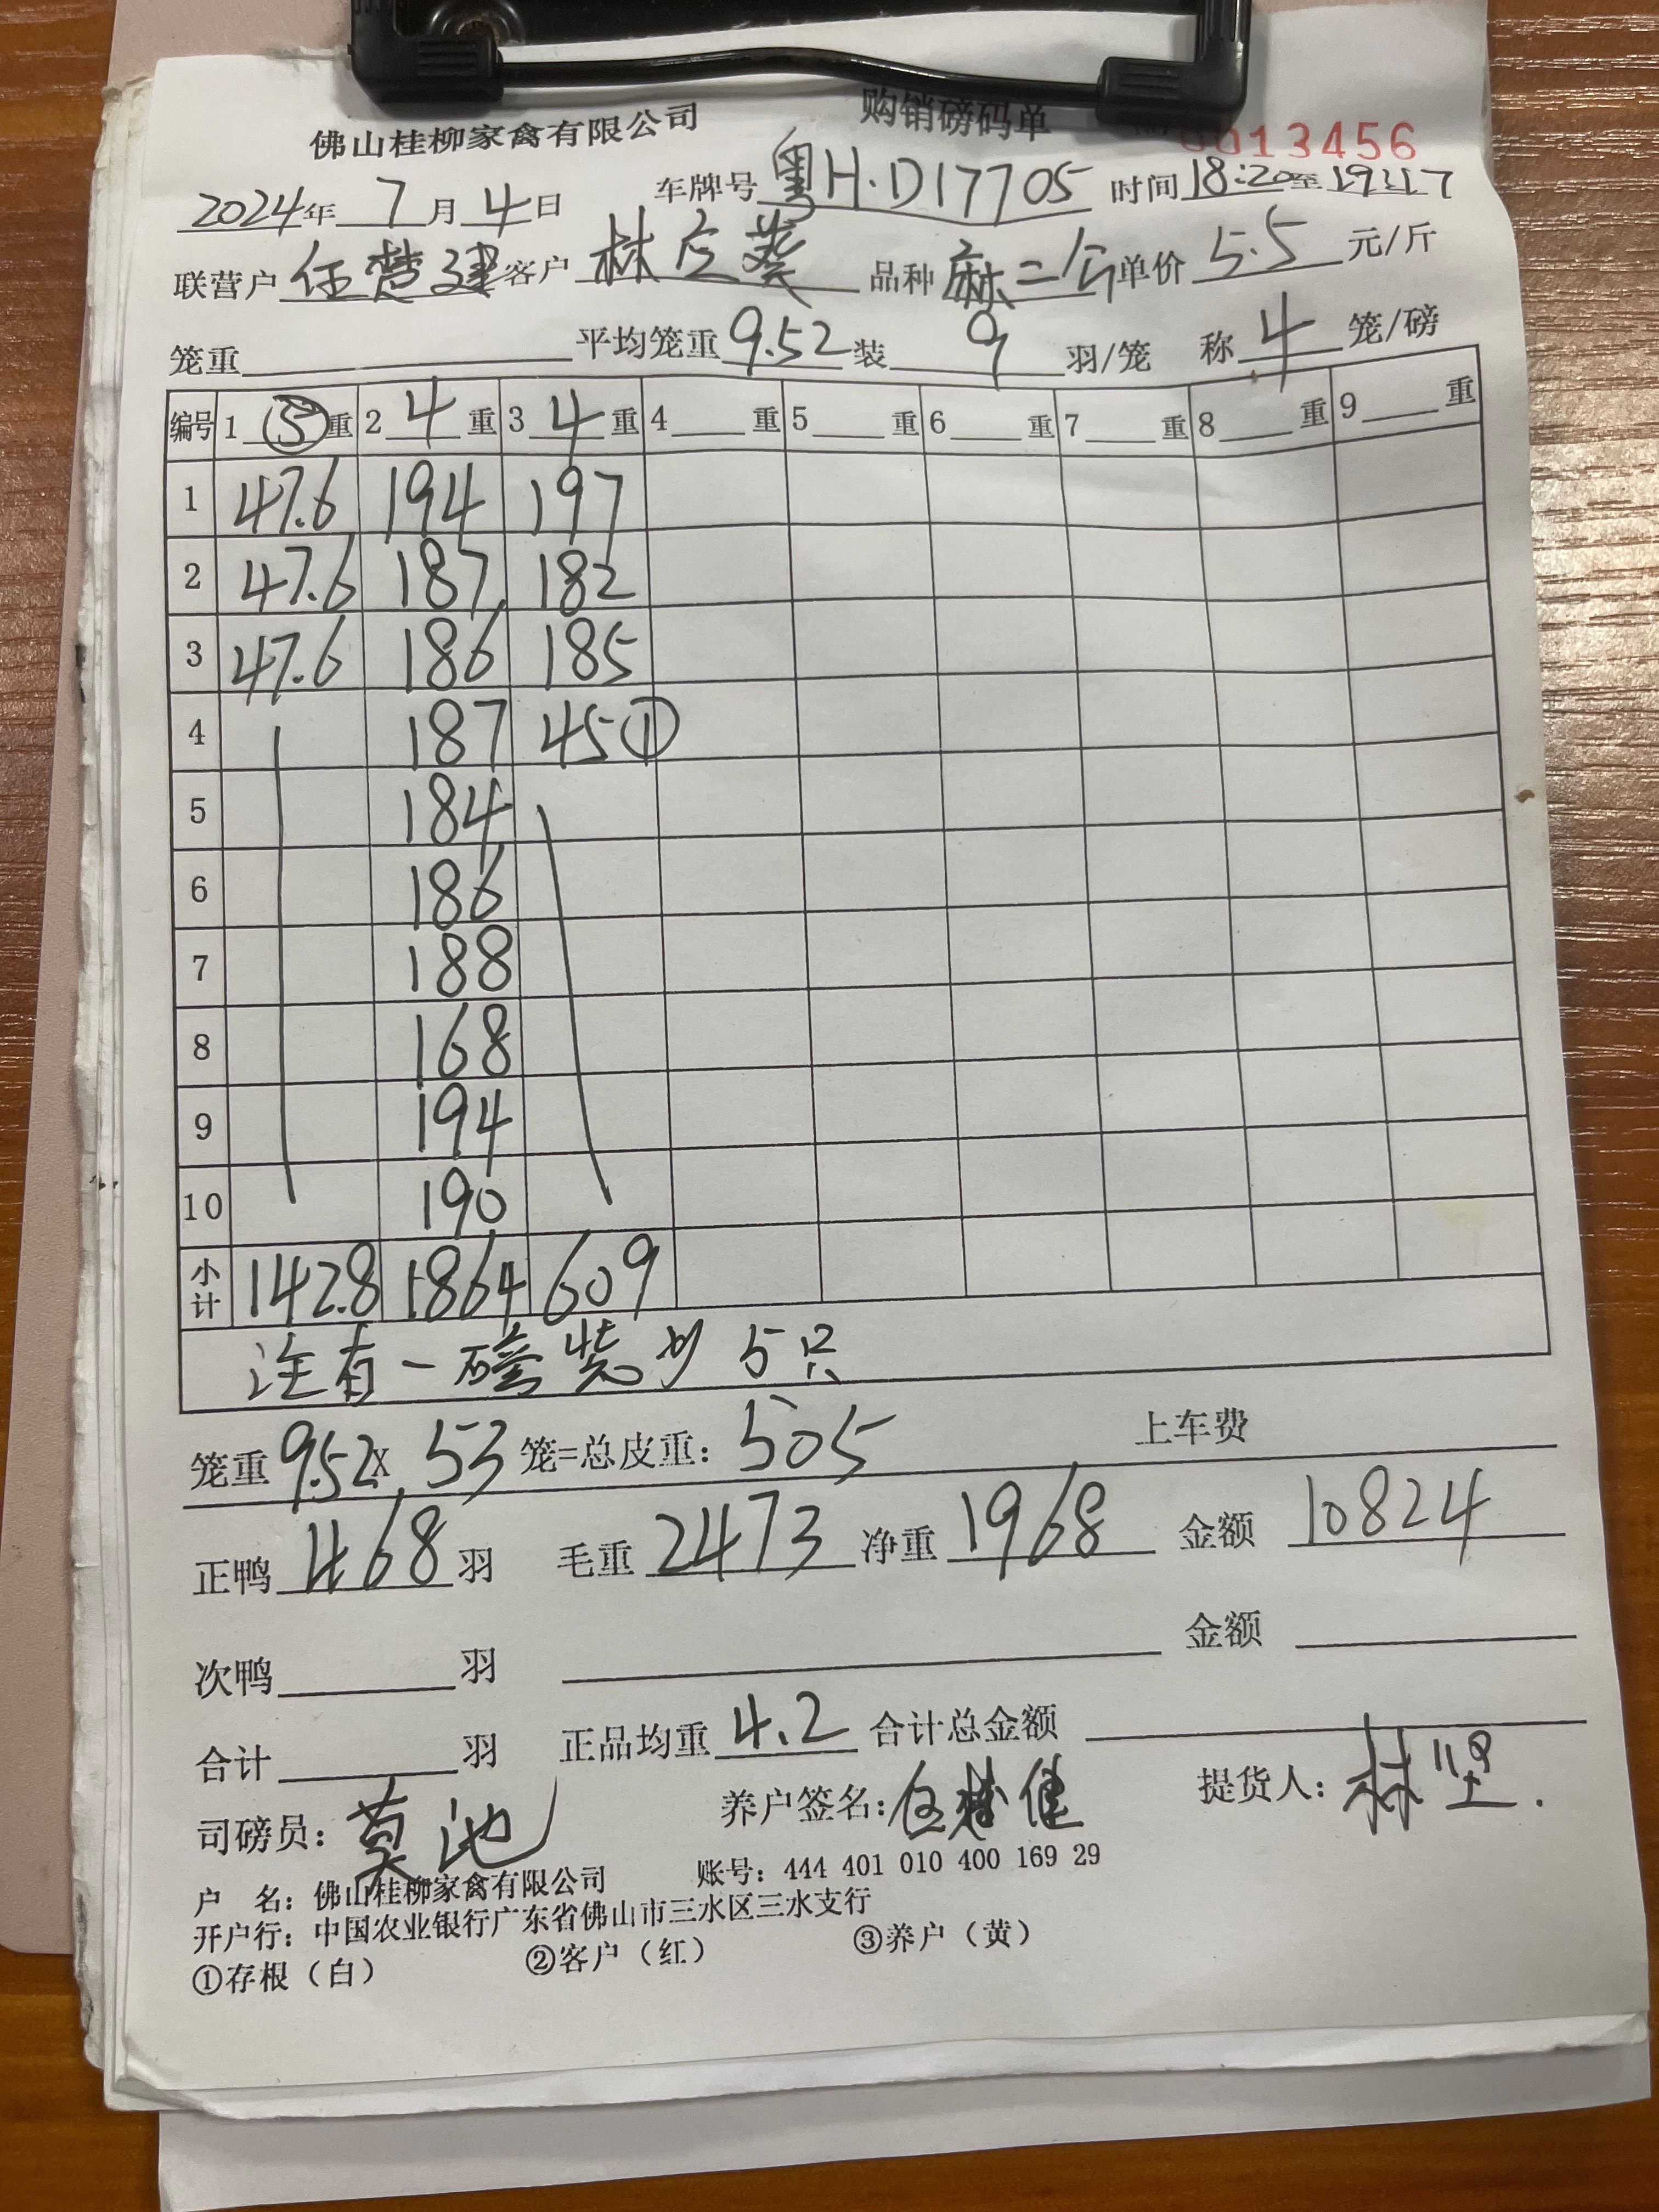 佛山桂柳家禽有限公司 购销磅码单
0013456
2024年 7 月 4 日 车牌号 粤H·D17705 时间 18:20至19:17
联营户 任楚建 客户 林应葵 品种 麻二公 单价 5.5 元/斤
笼重 平均笼重 9.52 装 9 羽/笼 称 4 笼/磅
编号 1 ⑤ 重 2 4 重 3 4 重 4 重 5 重 6 重 7 重 8 重 9 重
1 47.6 194 197
2 47.6 187 182
3 47.6 186 185
4 187 45 ①
5 184
6 186
7 188
8 168
9 194
10 190
小计 142.8 1864 609
注有一磅装少5只
笼重 9.52 x 53 笼=总皮重: 505 上车费
正鸭 468 羽 毛重 2473 净重 1968 金额 10824
次鸭 羽 金额
合计 羽 正品均重 4.2 合计总金额
司磅员: 莫池 养户签名: 提货人: 林坚.
户 名: 佛山桂柳家禽有限公司 账号: 444 401 010 400 169 29
开户行: 中国农业银行广东省佛山市三水区三水支行
①存根（白） ②客户（红） ③养户（黄）